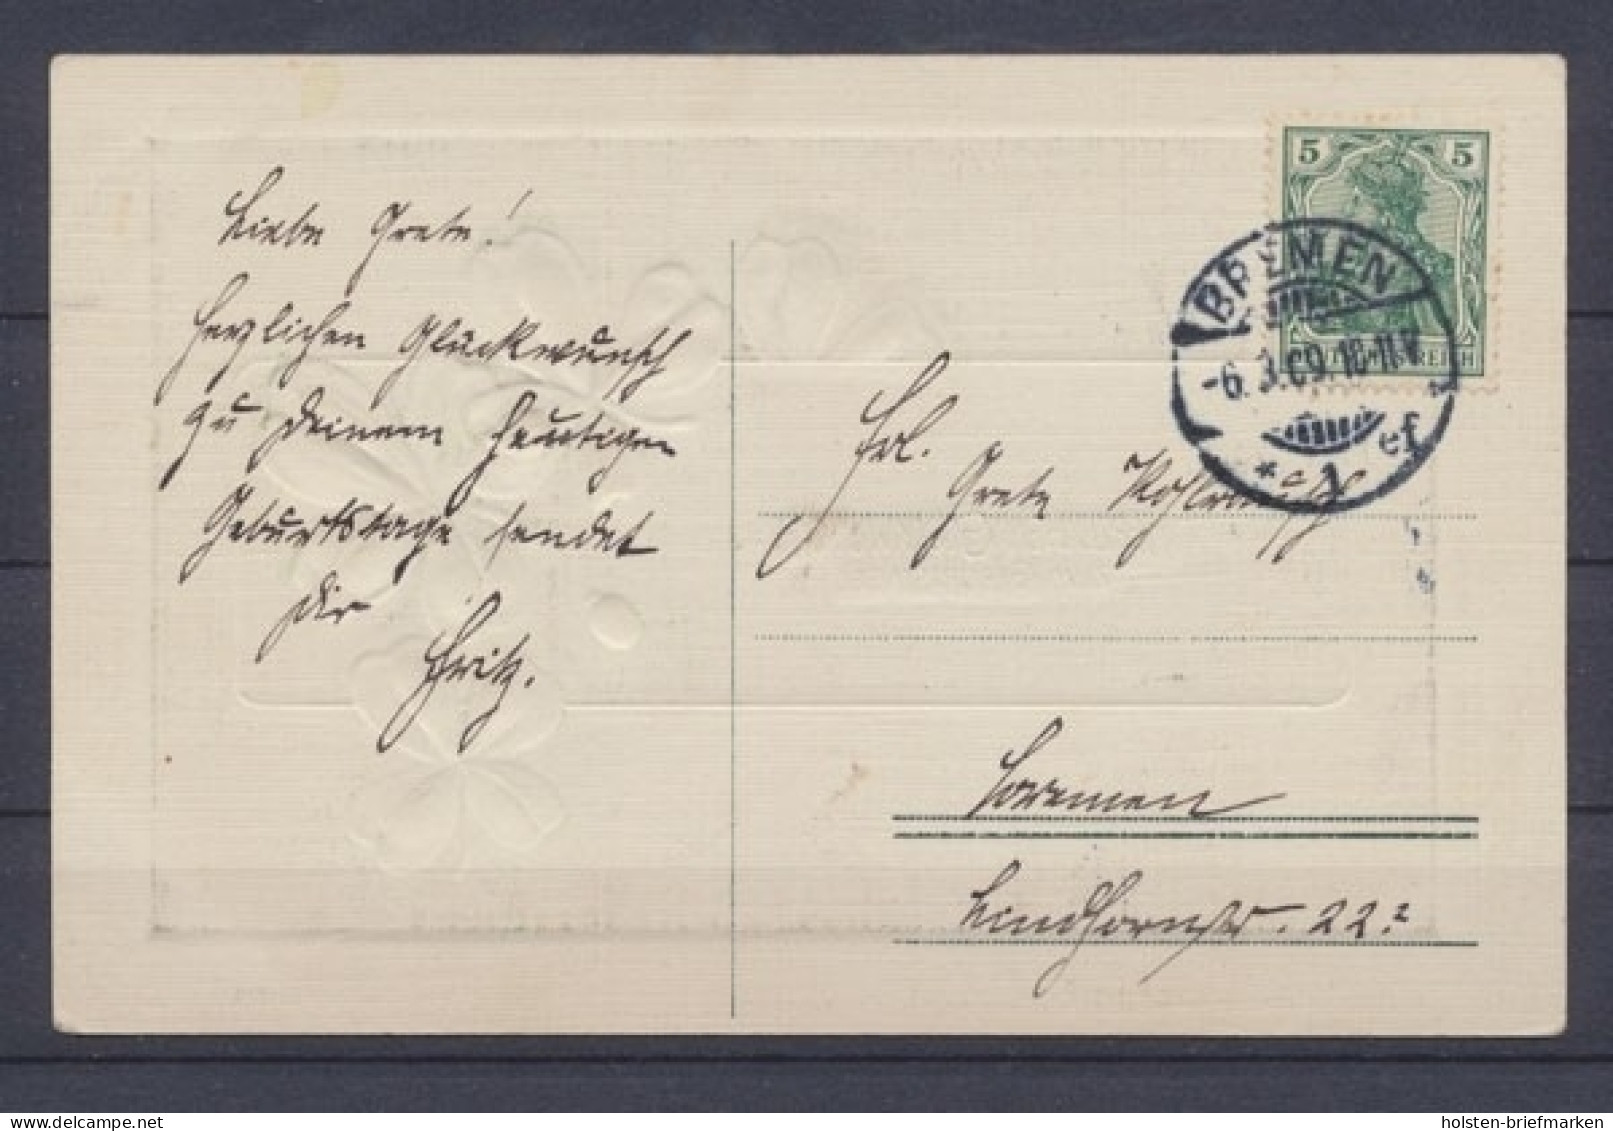 Liebe Grete!
Herzlichen Glückwunsch
zu Deinem heutigen
Geburtstage sendet
Dir
Fritz.
5 5
DEUTSCHES REICH
BREMEN
-6.3.09.10-11V
* 1 ef
Frl.
Grete
Bremen
Lindhornstr. 22
holsten-briefmarken